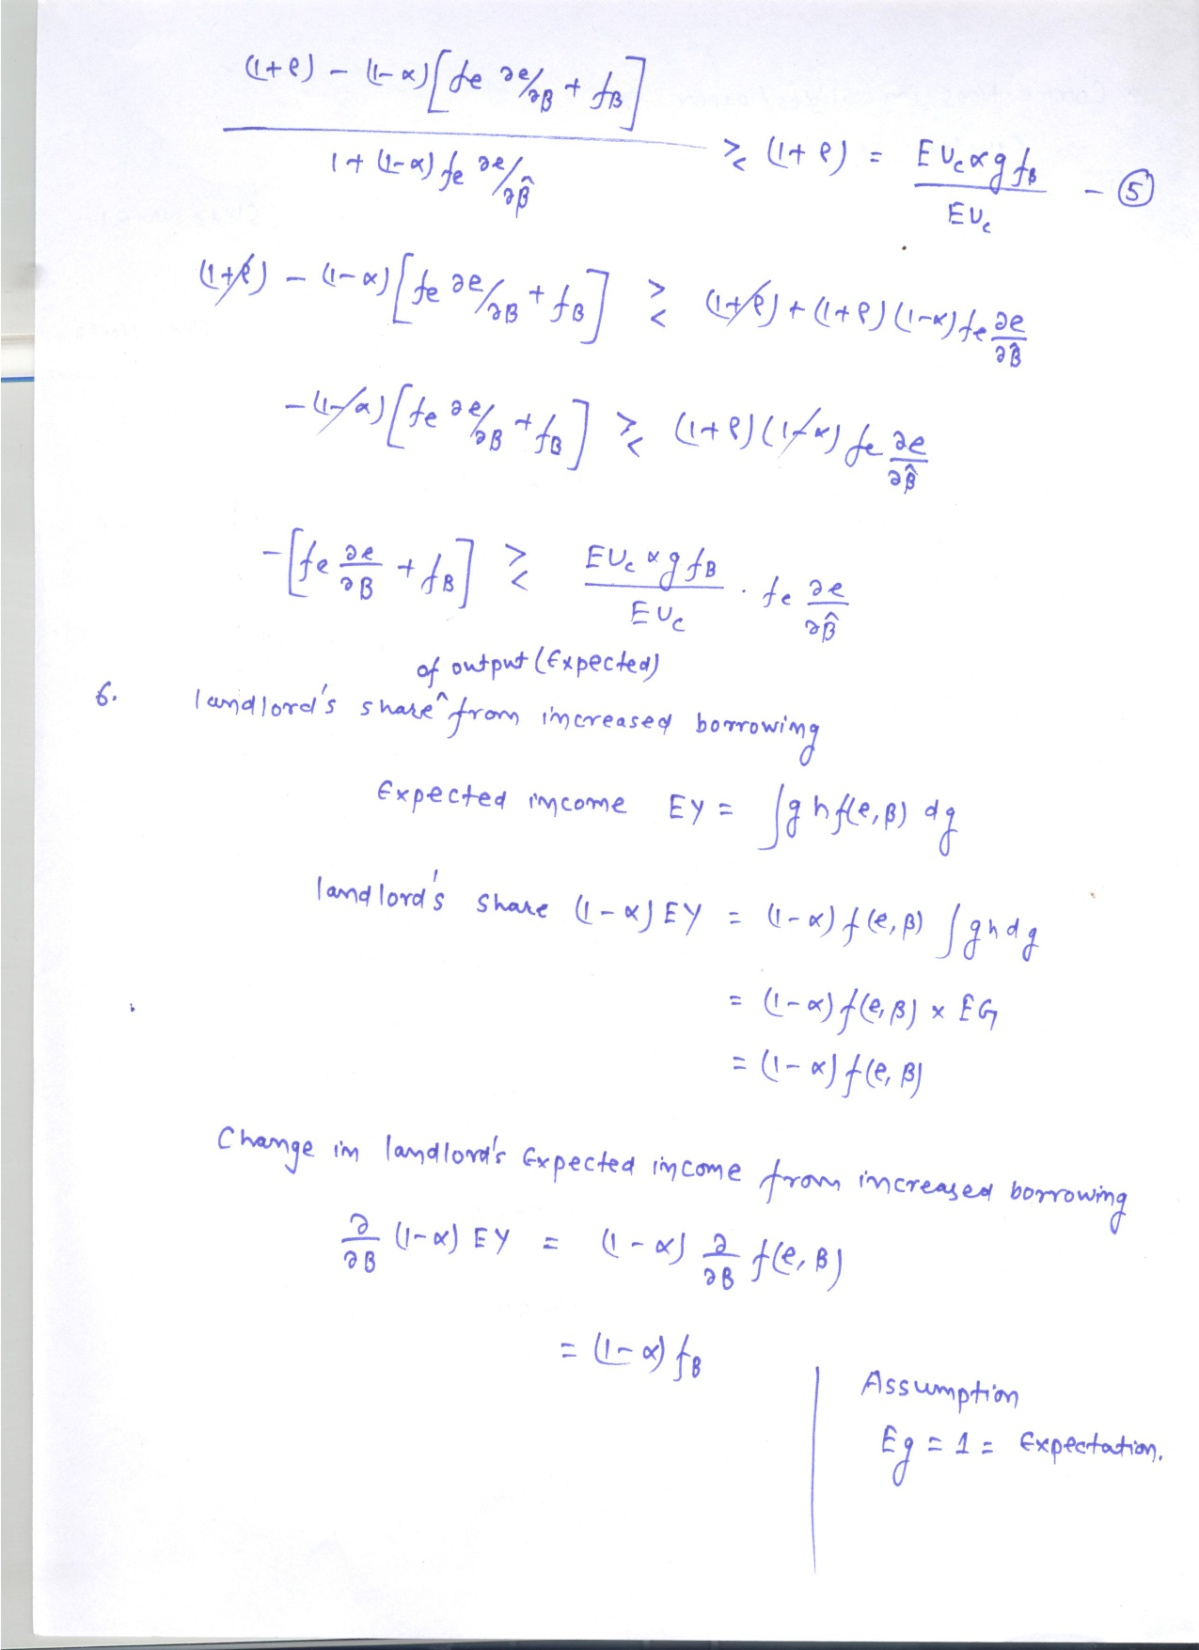 (1+ρ) − (1−α)[fe ∂e/∂B + fB]
1 + (1−α) fe ∂e/∂β̂
≷ (1+ρ) = EUc α g fB / EUc − ⑤
(1+ρ) − (1−α)[fe ∂e/∂B + fB] ≷ (1+ρ) + (1+ρ)(1−α) fe ∂e/∂β̂
−(1−α)[fe ∂e/∂B + fB] ≷ (1+ρ)(1−α) fe ∂e/∂β̂
−[fe ∂e/∂B + fB] ≷ EUc α g fB / EUc · fe ∂e/∂β̂
of output (Expected)
6. landlord's share ^ from increased borrowing
Expected income EY = ∫g h f(e,β) dg
landlord's share (1−α) EY = (1−α) f(e,β) ∫g h dg
= (1−α) f(e,β) × EG
= (1−α) f(e,β)
Change in landlord's Expected income from increased borrowing
∂/∂B (1−α) EY = (1−α) ∂/∂B f(e,B)
= (1−α) fB
Assumption
Eg = 1 = Expectation.